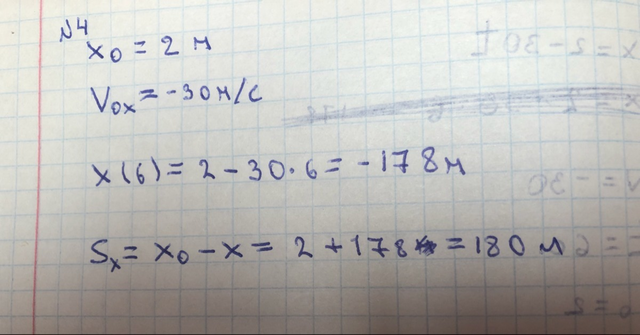 №4
x₀ = 2 м
V₀ₓ = -30 м/с
x(6) = 2 - 30·6 = -178 м
Sₓ = x₀ - x = 2 + 178 = 180 м